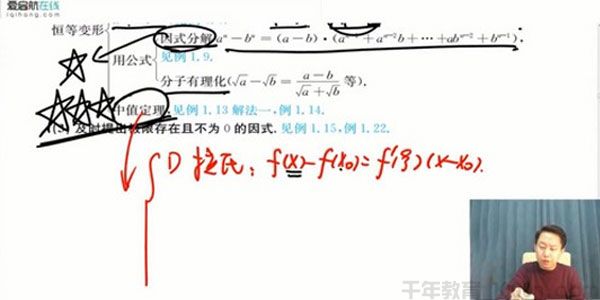 爱启航在线
iqihang.com
恒等变形
因式分解 aⁿ − bⁿ = (a − b)·(aⁿ⁻¹ + aⁿ⁻²b + ⋯ + abⁿ⁻² + bⁿ⁻¹).
用公式
见例 1.9.
分子有理化(√a − √b = (a − b)/(√a + √b) 等).
中值定理. 见例 1.13 解法一, 例 1.14.
及时提出极限存在且不为 0 的因式. 见例 1.15, 例 1.22.
① 拉氏: f(x) − f(x₀) = f′(ξ)(x − x₀).
千年教育